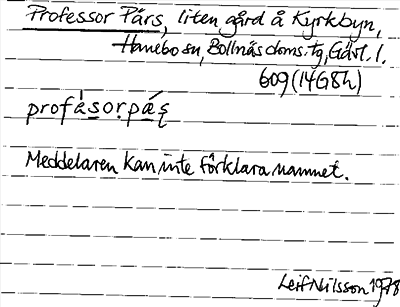 Professor Pärs, liten gård å Kyrkbyn,
Hanebo sn, Bollnäs doms. tg, Gävl. l.
609 (14G8h)
profásorpǽʂ
Meddelaren kan inte förklara namnet.
Leif Nilsson 1978